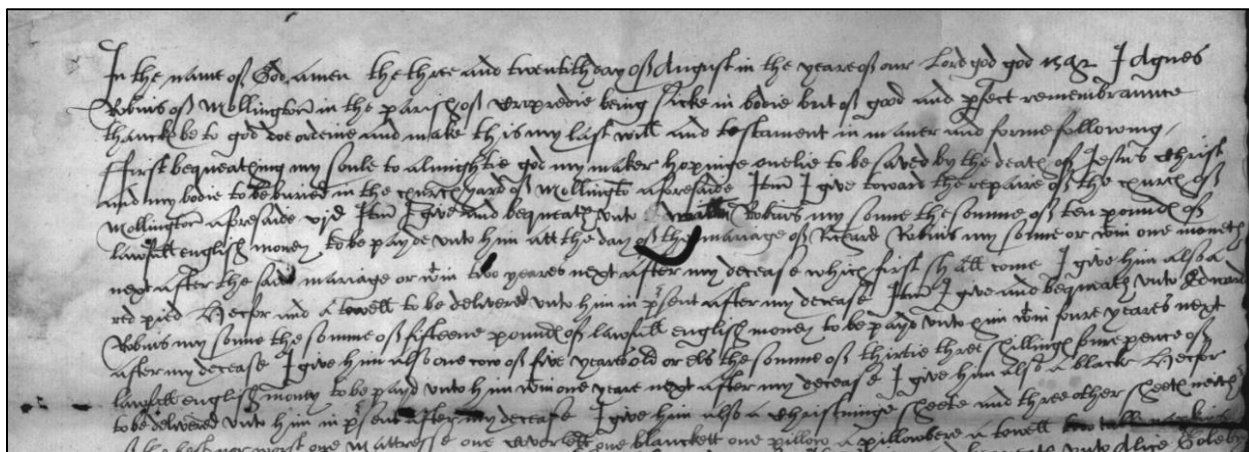 In the name of God amen the three and twentith day of August in the yeare of our Lord god god 1592 I Agnes
Robins of Mollington in the parish of Cropredie being sicke in bodie but of good and pfect remembraunce
thanckes be to god doe ordeine and make this my last will and testament in maner and forme following,
First bequeathing my soule to almightie god my maker hopinge onelie to be saved by the death of Jesus Christ
and my bodie to be buried in the church yard of Mollingto aforesaide Itm I give toward the repaire of the church of
Mollington aforesaide vjd Itm I give and bequeath unto Robins my sonne the somme of ten pounds of
lawfull english money to be payde unto him att the day of the mariage of Ricard Robins my sonne or wthin one moneth
next after the said mariage or wthin two yeares next after my decease which first shall come I give him also a
red pied Hecfor and a towell to be delivered unto him in psent after my decease Itm I give and bequeath unto Edward
Robins my sonne the somme of fifteene pounds of lawfull english money to be payd unto him wthin foure yeares next
after my decease I give him also one cow of five yeares old or els the somme of thirtie three shillings foure pence of
lawfull english money to be payd unto him wthin one yeare next after my decease I give him also a blacke Hecfor
to be delivered unto him in psent after my decease I give him also a Christninge sheete and three other sheets neither
the best nor worst one mattresse one Coverlett one blanckett one pillow a pillowbere a towell
unto Alice